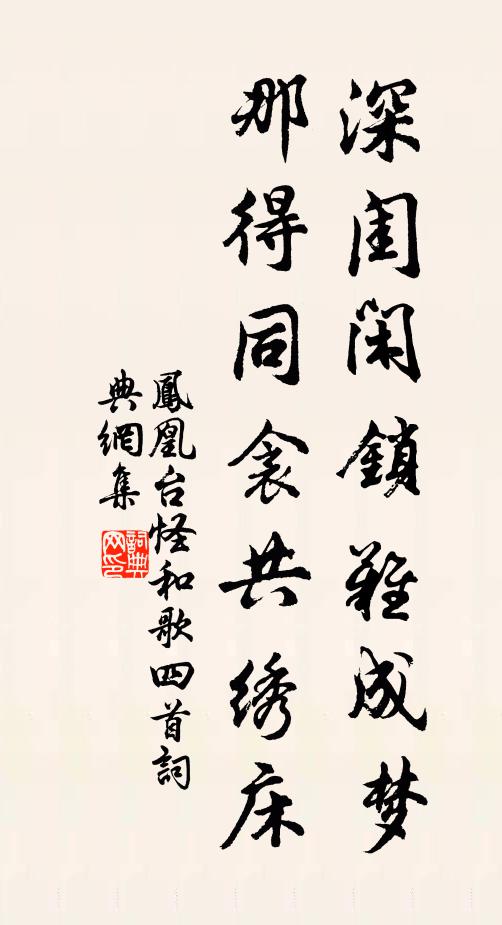 深闺闲鎖難成梦
那得同衾共绣床
鳳凰台怪和歌四首詞
典網集
詞典
网印